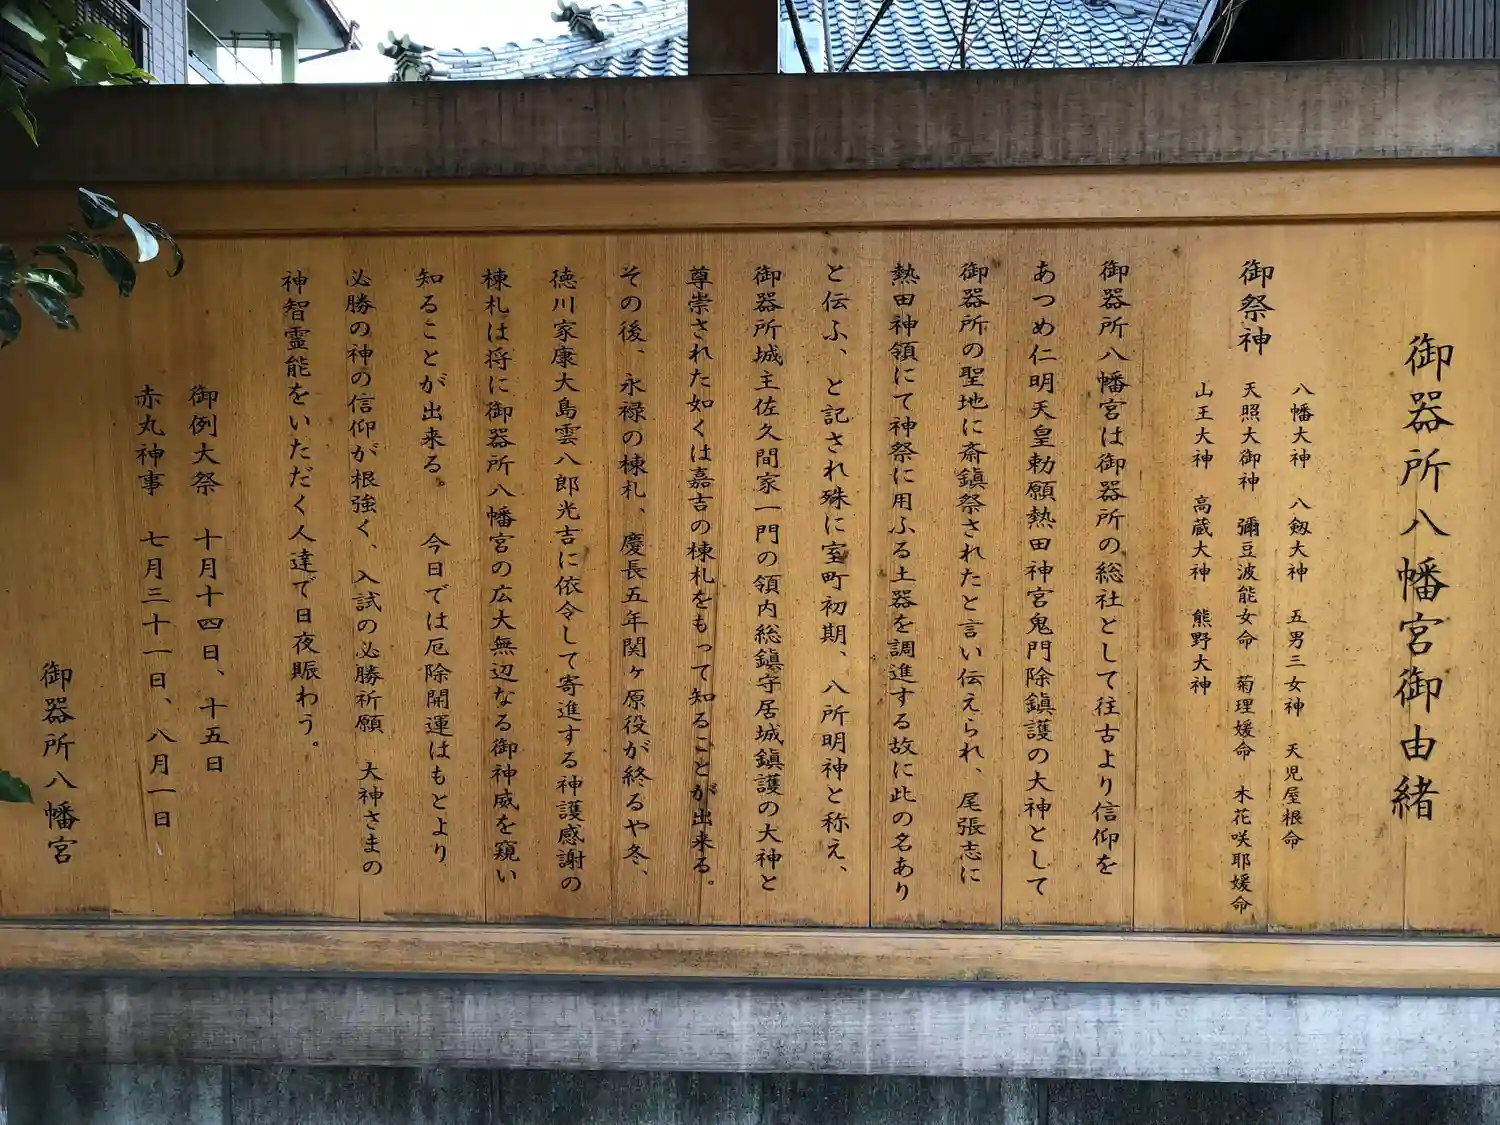 御器所八幡宮御由緒
御祭神
八幡大神 八剱大神 五男三女神 天児屋根命
天照大御神 彌豆波能女命 菊理媛命 木花咲耶媛命
山王大神 高蔵大神 熊野大神
御器所八幡宮は御器所の総社として往古より信仰を
あつめ仁明天皇勅願熱田神宮鬼門除鎮護の大神として
御器所の聖地に斎鎮祭されたと言い伝えられ、尾張志に
熱田神領にて神祭に用ふる土器を調進する故に此の名あり
と伝ふ、と記され殊に室町初期、八所明神と称え、
御器所城主佐久間家一門の領内総鎮守居城鎮護の大神と
尊崇された如くは嘉吉の棟札をもって知ることが出来る。
その後、永禄の棟札、慶長五年関ヶ原役が終るや冬、
徳川家康大島雲八郎光吉に依令して寄進する神護感謝の
棟札は将に御器所八幡宮の広大無辺なる御神威を窺い
知ることが出来る。 今日では厄除開運はもとより
必勝の神の信仰が根強く、入試の必勝祈願 大神さまの
神智霊能をいただく人達で日夜賑わう。
御例大祭 十月十四日、十五日
赤丸神事 七月三十一日、八月一日
御器所八幡宮